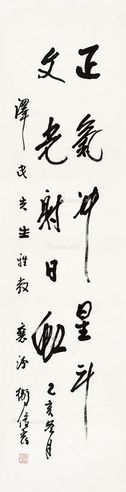 正氣沖星斗
文光射日虹
乙亥冬月
澤民先生雅教
襄汾